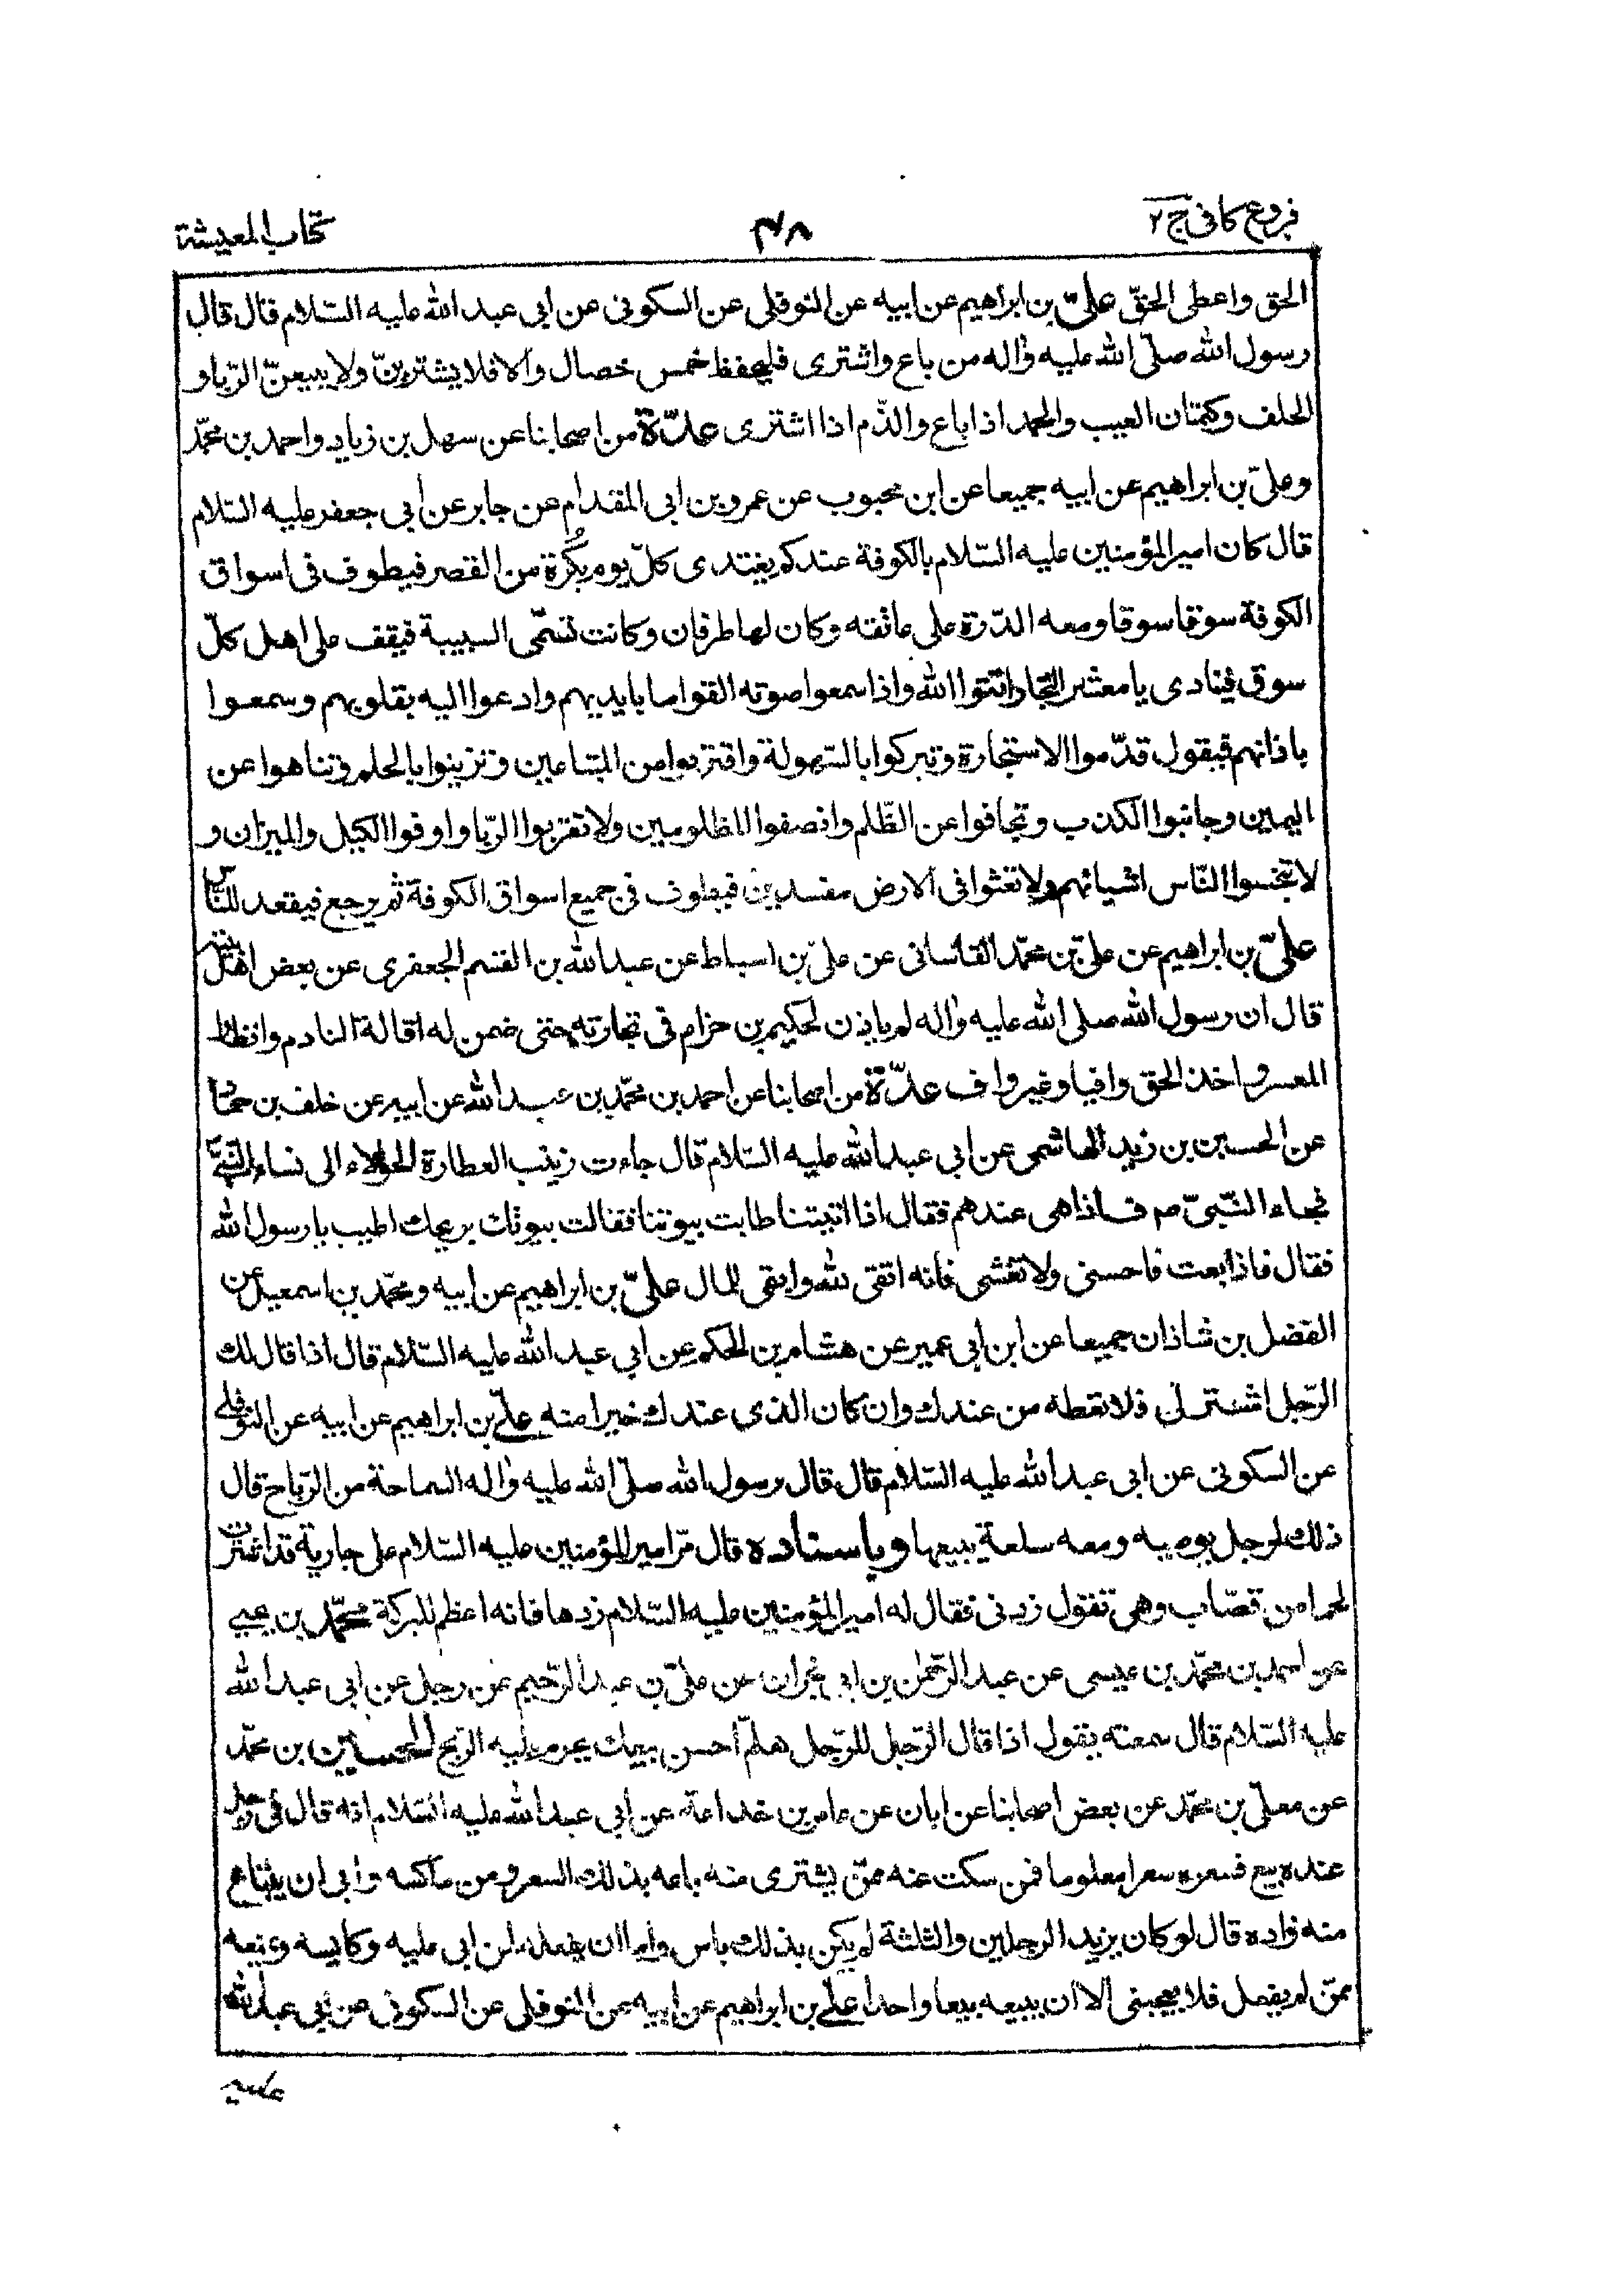 فروع كافى ج ٢
٣٨
كتاب المعيشة
الحق واعطى الحقّ علىّ بن ابراهيم عن ابيه عن النوفلى عن السكونى عن ابى عبد الله عليه السّلام قال قال
رسول الله صلّى الله عليه واله من باع واشترى فليحفظ خمس خصال والا فلا يشترينّ ولا يبيعنّ الرّبا و
الحلف وكتمان العيب والحمد اذا باع والذّم اذا اشترى عدّة من اصحابنا عن سهل بن زياد واحمد بن محمّد
وعلىّ بن ابراهيم عن ابيه جميعا عن ابن محبوب عن عمرو بن ابى المقدام عن جابر عن أبى جعفر عليه السّلام
قال كان امير المؤمنين عليه السّلام بالكوفة عندكم يغتدى كلّ يوم بُكرة من القصر فيطوف فى اسواق
الكوفة سوقا سوقا ومعه الدّرة على عاتقه وكان لها طرفان وكانت تسمّى السبيبة فيقف على اهل كلّ
سوق فينادى يا معشر التجار اتقوا الله واذا سمعوا صوته القوا ما بايديهم وادعوا اليه بقلوبهم وسمعوا
باذانهم فيقول قدّموا الاستخارة وتبركوا بالسّهولة واقتربوا من المبتاعين وتزينوا بالحلم وتناهوا عن
اليمين وجانبوا الكذب وتجافوا عن الظّلم وانصفوا المظلومين ولا تقربوا الرّبا واوفوا الكيل والميزان و
لا تبخسوا النّاس اشيائهم ولا تعثوا فى الارض مفسدين فيطوف فى جميع اسواق الكوفة ثم يرجع فيقعد للنّاس
علىّ بن ابراهيم عن علىّ بن محمّد القاسانى عن علىّ بن اسباط عن عبد الله بن القسم الجعفرى عن بعض اهل بيته
قال ان رسول الله صلى الله عليه واله لم ياذن لحكيم بن حزام فى تجارته حتى ضمن له اقالة النادم وانظار
المعسر واخذ الحق وافيا وغير واف عدّة من اصحابنا عن احمد بن محمّد بن عبد الله عن ابيه عن خلف بن حماد
عن الحسين بن زيد الهاشمى عن ابى عبد الله عليه السّلام قال جاءت زينب العطارة الحولاء الى نساء النبىّ
فجاء النّبىّ ص فاذا هى عندهم فقال اذا اتيتنا طابت بيوتنا فقالت بيوتك بريحك اطيب يا رسول الله
فقال فاذا بعت فاحسنى ولا تغشى فانه اتقى لله وابقى للمال علىّ بن ابراهيم عن ابيه ومحمّد بن اسمعيل عن
الفضل بن شاذان جميعا عن ابن ابى عمير عن هشام بن الحكم عن ابى عبد الله عليه السّلام قال اذا قال لك
الرّجل اشتر لى فلا تعطه من عندك وان كان الذى عندك خيرا منه علىّ بن ابراهيم عن ابيه عن النوفلى
عن السكونى عن ابى عبد الله عليه السّلام قال قال رسول الله صلّى الله عليه واله السماحة من الرّباح قال
ذلك لرجل يوصيه ومعه سلعة يبيعها وباسناده قال مرّ امير المؤمنين عليه السّلام على جارية قد اشترت
لحما من قصّاب وهى تقول زدنى فقال له امير المؤمنين عليه السّلام زدها فانه اعظم للبركة محمّد بن يحيى
عن احمد بن محمّد بن عيسى عن عبد الرّحمن بن ابى نجران عن علىّ بن عبد الرّحيم عن رجل عن ابى عبد الله
عليه السّلام قال سمعته يقول اذا قال الرّجل للرّجل هلمّ احسن بيعك يحرم عليه الرّبح الحسين بن محمّد
عن معلّى بن محمّد عن بعض اصحابنا عن ابان عن عامر بن خداعة عن ابى عبد الله عليه السّلام انه قال فى رجل
عنده بيع فسعره سعرا معلوما فمن سكت عنه ممّن يشترى منه باعه بذلك السعر ومن ماكسه وابى ان يبتاع
منه زاده قال لو كان يزيد الرجلين والثلثة لم يكن بذلك باس واما ان يفعله لمن ابى عليه وكايسه ويمنعه
ممّن لم يفعل فلا يعجبنى الا ان يبيعه بيعا واحدا علىّ بن ابراهيم عن ابيه عن النوفلى عن السكونى عن ابى عبد الله
عليه